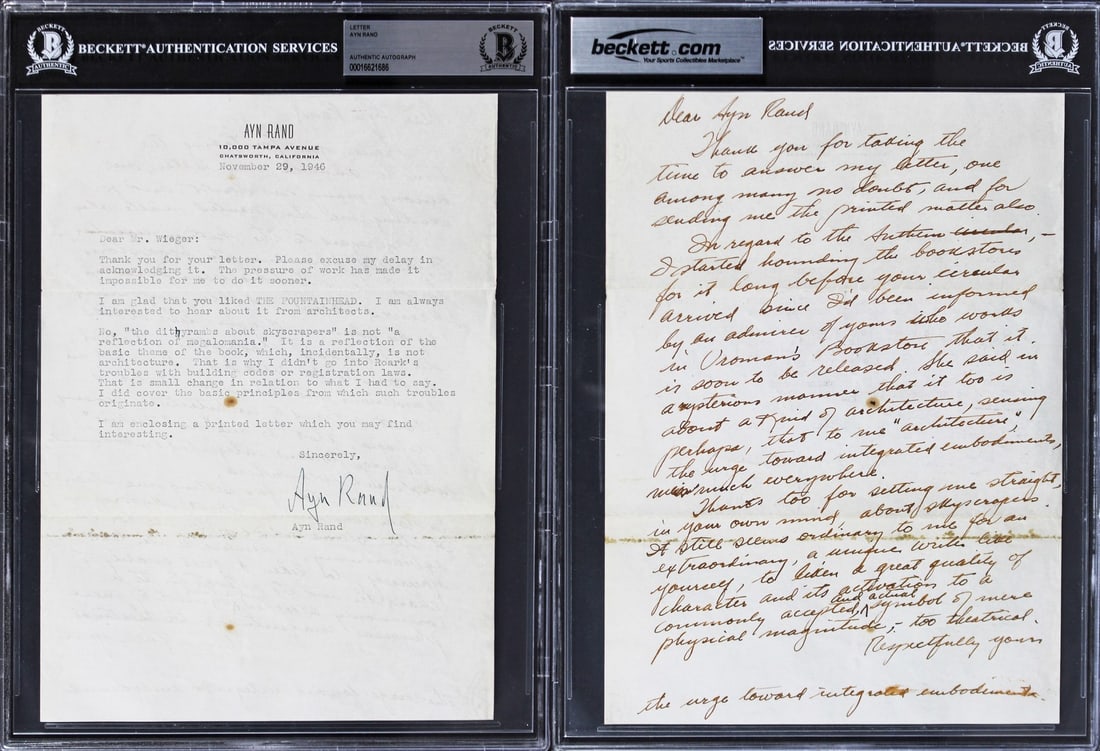 BECKETT
AUTHENTIC
BECKETT AUTHENTICATION SERVICES
LETTER
AYN RAND
AUTHENTIC AUTOGRAPH
00016621686
BECKETT
AUTHENTIC
AYN RAND
10,000 TAMPA AVENUE
CHATSWORTH, CALIFORNIA
November 29, 1946
Dear Mr. Wieger:
Thank you for your letter. Please excuse my delay in
acknowledging it. The pressure of work has made it
impossible for me to do it sooner.
I am glad that you liked THE FOUNTAINHEAD. I am always
interested to hear about it from architects.
No, "the dithyrambs about skyscrapers" is not "a
reflection of megalomania." It is a reflection of the
basic theme of the book, which, incidentally, is not
architecture. That is why I didn't go into Roark's
troubles with building codes or registration laws.
That is small change in relation to what I had to say.
I did cover the basic principles from which such troubles
originate.
I am enclosing a printed letter which you may find
interesting.
Sincerely,
Ayn Rand
Ayn Rand
beckett.com
Your Sports Collectibles Marketplace
BECKETT AUTHENTICATION SERVICES
BECKETT
AUTHENTIC
Dear Ayn Rand
Thank you for taking the
time to answer my letter, one
among many no doubt, and for
sending me the printed matter also.
In regard to the Anthem circular, –
I started hounding the bookstores
for it long before your circular
arrived since I'd been informed
by an admirer of yours who works
in Vroman's Bookstore that it
is soon to be released. She said in
a mysterious manner that it too is
about a kind of architecture, sensing
perhaps, that to me "architecture",
the urge toward integrated embodiments,
is much everywhere.
Thanks too for setting me straight,
in your own mind about skyscrapers.
It still seems ordinary to me for an
extraordinary, a unique writer like
yourself, to liken a great quality of
character and its activation to a
commonly accepted, and actual symbol of mere
physical magnitude, – too theatrical.
Respectfully yours
the urge toward integrated embodiments.